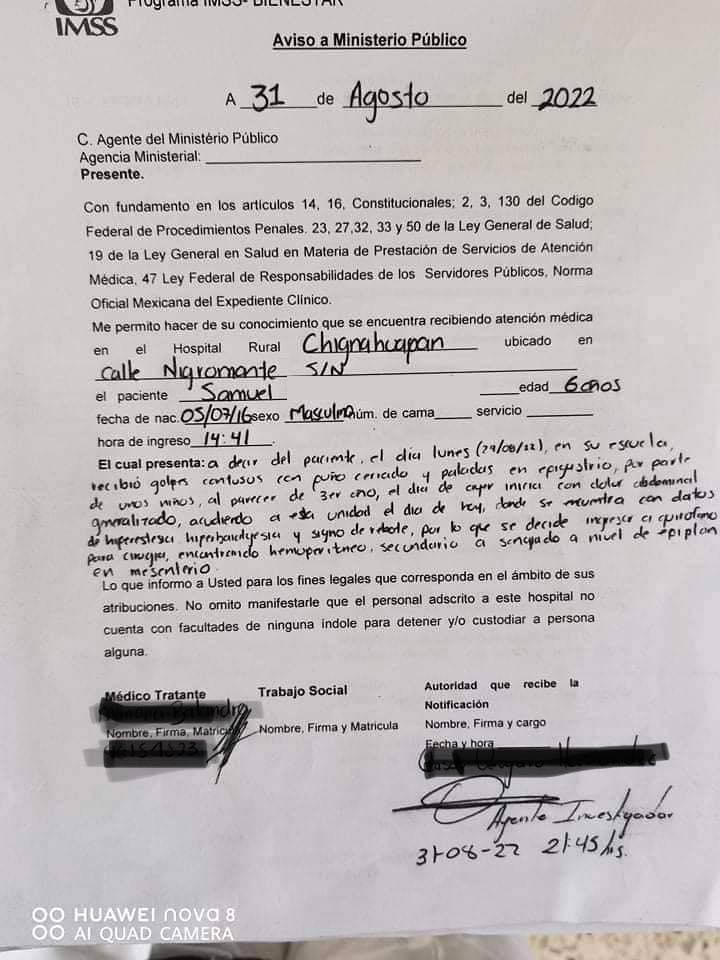 Programa IMSS- BIENESTAR
IMSS
Aviso a Ministerio Público
A 31 de Agosto del 2022
C. Agente del Ministério Público
Agencia Ministerial:
Presente.
Con fundamento en los artículos 14, 16, Constitucionales; 2, 3, 130 del Codigo
Federal de Procedimientos Penales. 23, 27,32, 33 y 50 de la Ley General de Salud;
19 de la Ley General en Salud en Materia de Prestación de Servicios de Atención
Médica, 47 Ley Federal de Responsabilidades de los Servidores Públicos, Norma
Oficial Mexicana del Expediente Clínico.
Me permito hacer de su conocimiento que se encuentra recibiendo atención médica
en el Hospital Rural Chignahuapan ubicado en
Calle Nigromante S/N
el paciente Samuel edad 6 años
fecha de nac. 05/07/16 sexo Masculino núm. de cama servicio
hora de ingreso 14:41.
El cual presenta: a decir del paciente, el día lunes (29/08/22), en su escuela,
recibió golpes contusos con puño cerrado y patadas en epigastrio, por parte
de unos niños, al parecer de 3er año, el día de ayer inicia con dolor abdominal
generalizado, acudiendo a esta unidad el día de hoy, donde se muestra con datos
de hiperestesia hiperbaralgesia y signo de rebote, por lo que se decide ingresar a quirofano
para cirugía, encontrando hemoperitoneo, secundario a sangrado a nivel de epiplon
en mesenterio.
Lo que informo a Usted para los fines legales que corresponda en el ámbito de sus
atribuciones. No omito manifestarle que el personal adscrito a este hospital no
cuenta con facultades de ninguna índole para detener y/o custodiar a persona
alguna.
Médico Tratante
Nombre, Firma, Matricula
Trabajo Social
Nombre, Firma y Matricula
Autoridad que recibe la
Notificación
Nombre, Firma y cargo
Fecha y hora
Agente Investigador
31-08-22 21:45 hs.
HUAWEI nova 8
AI QUAD CAMERA